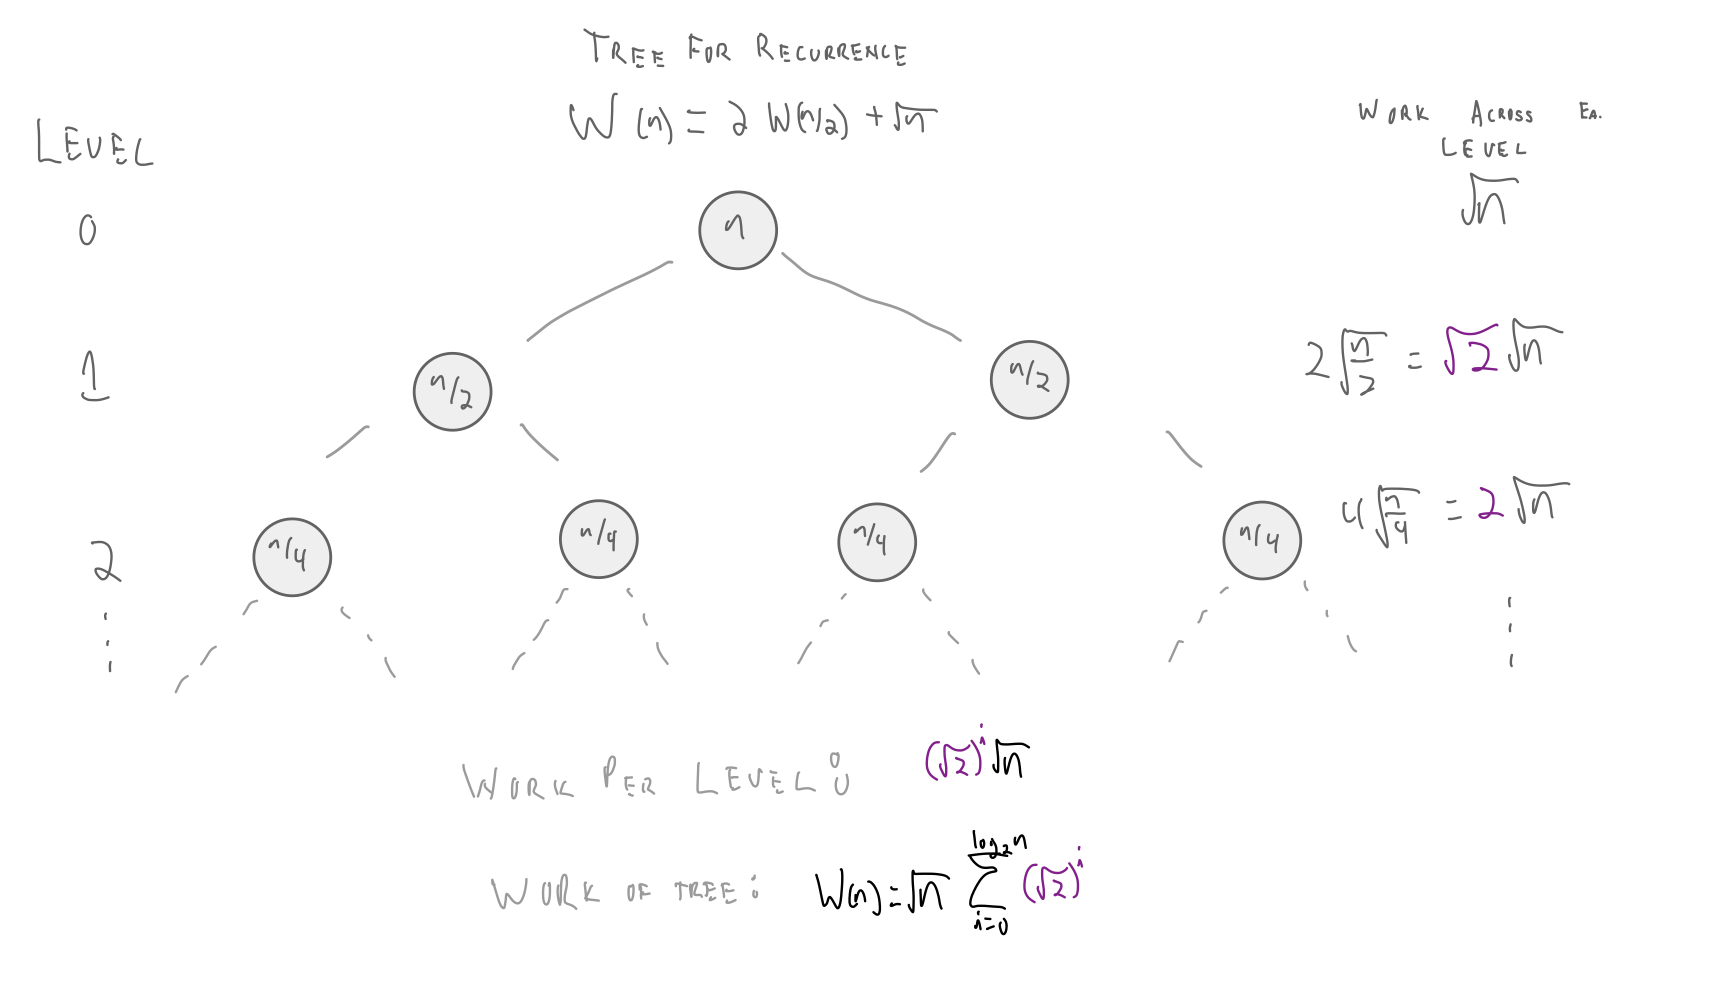 TREE FOR RECURRENCE
W(n) = 2 W(n/2) + √n
LEVEL
WORK ACROSS EA.
LEVEL
0
n
√n
1
n/2
n/2
2√(n/2) = √2 √n
2
n/4
n/4
n/4
n/4
4√(n/4) = 2√n
WORK PER LEVEL: (√2)^i √n
WORK OF TREE: W(n) = √n ∑_{i=0}^{log₂n} (√2)^i